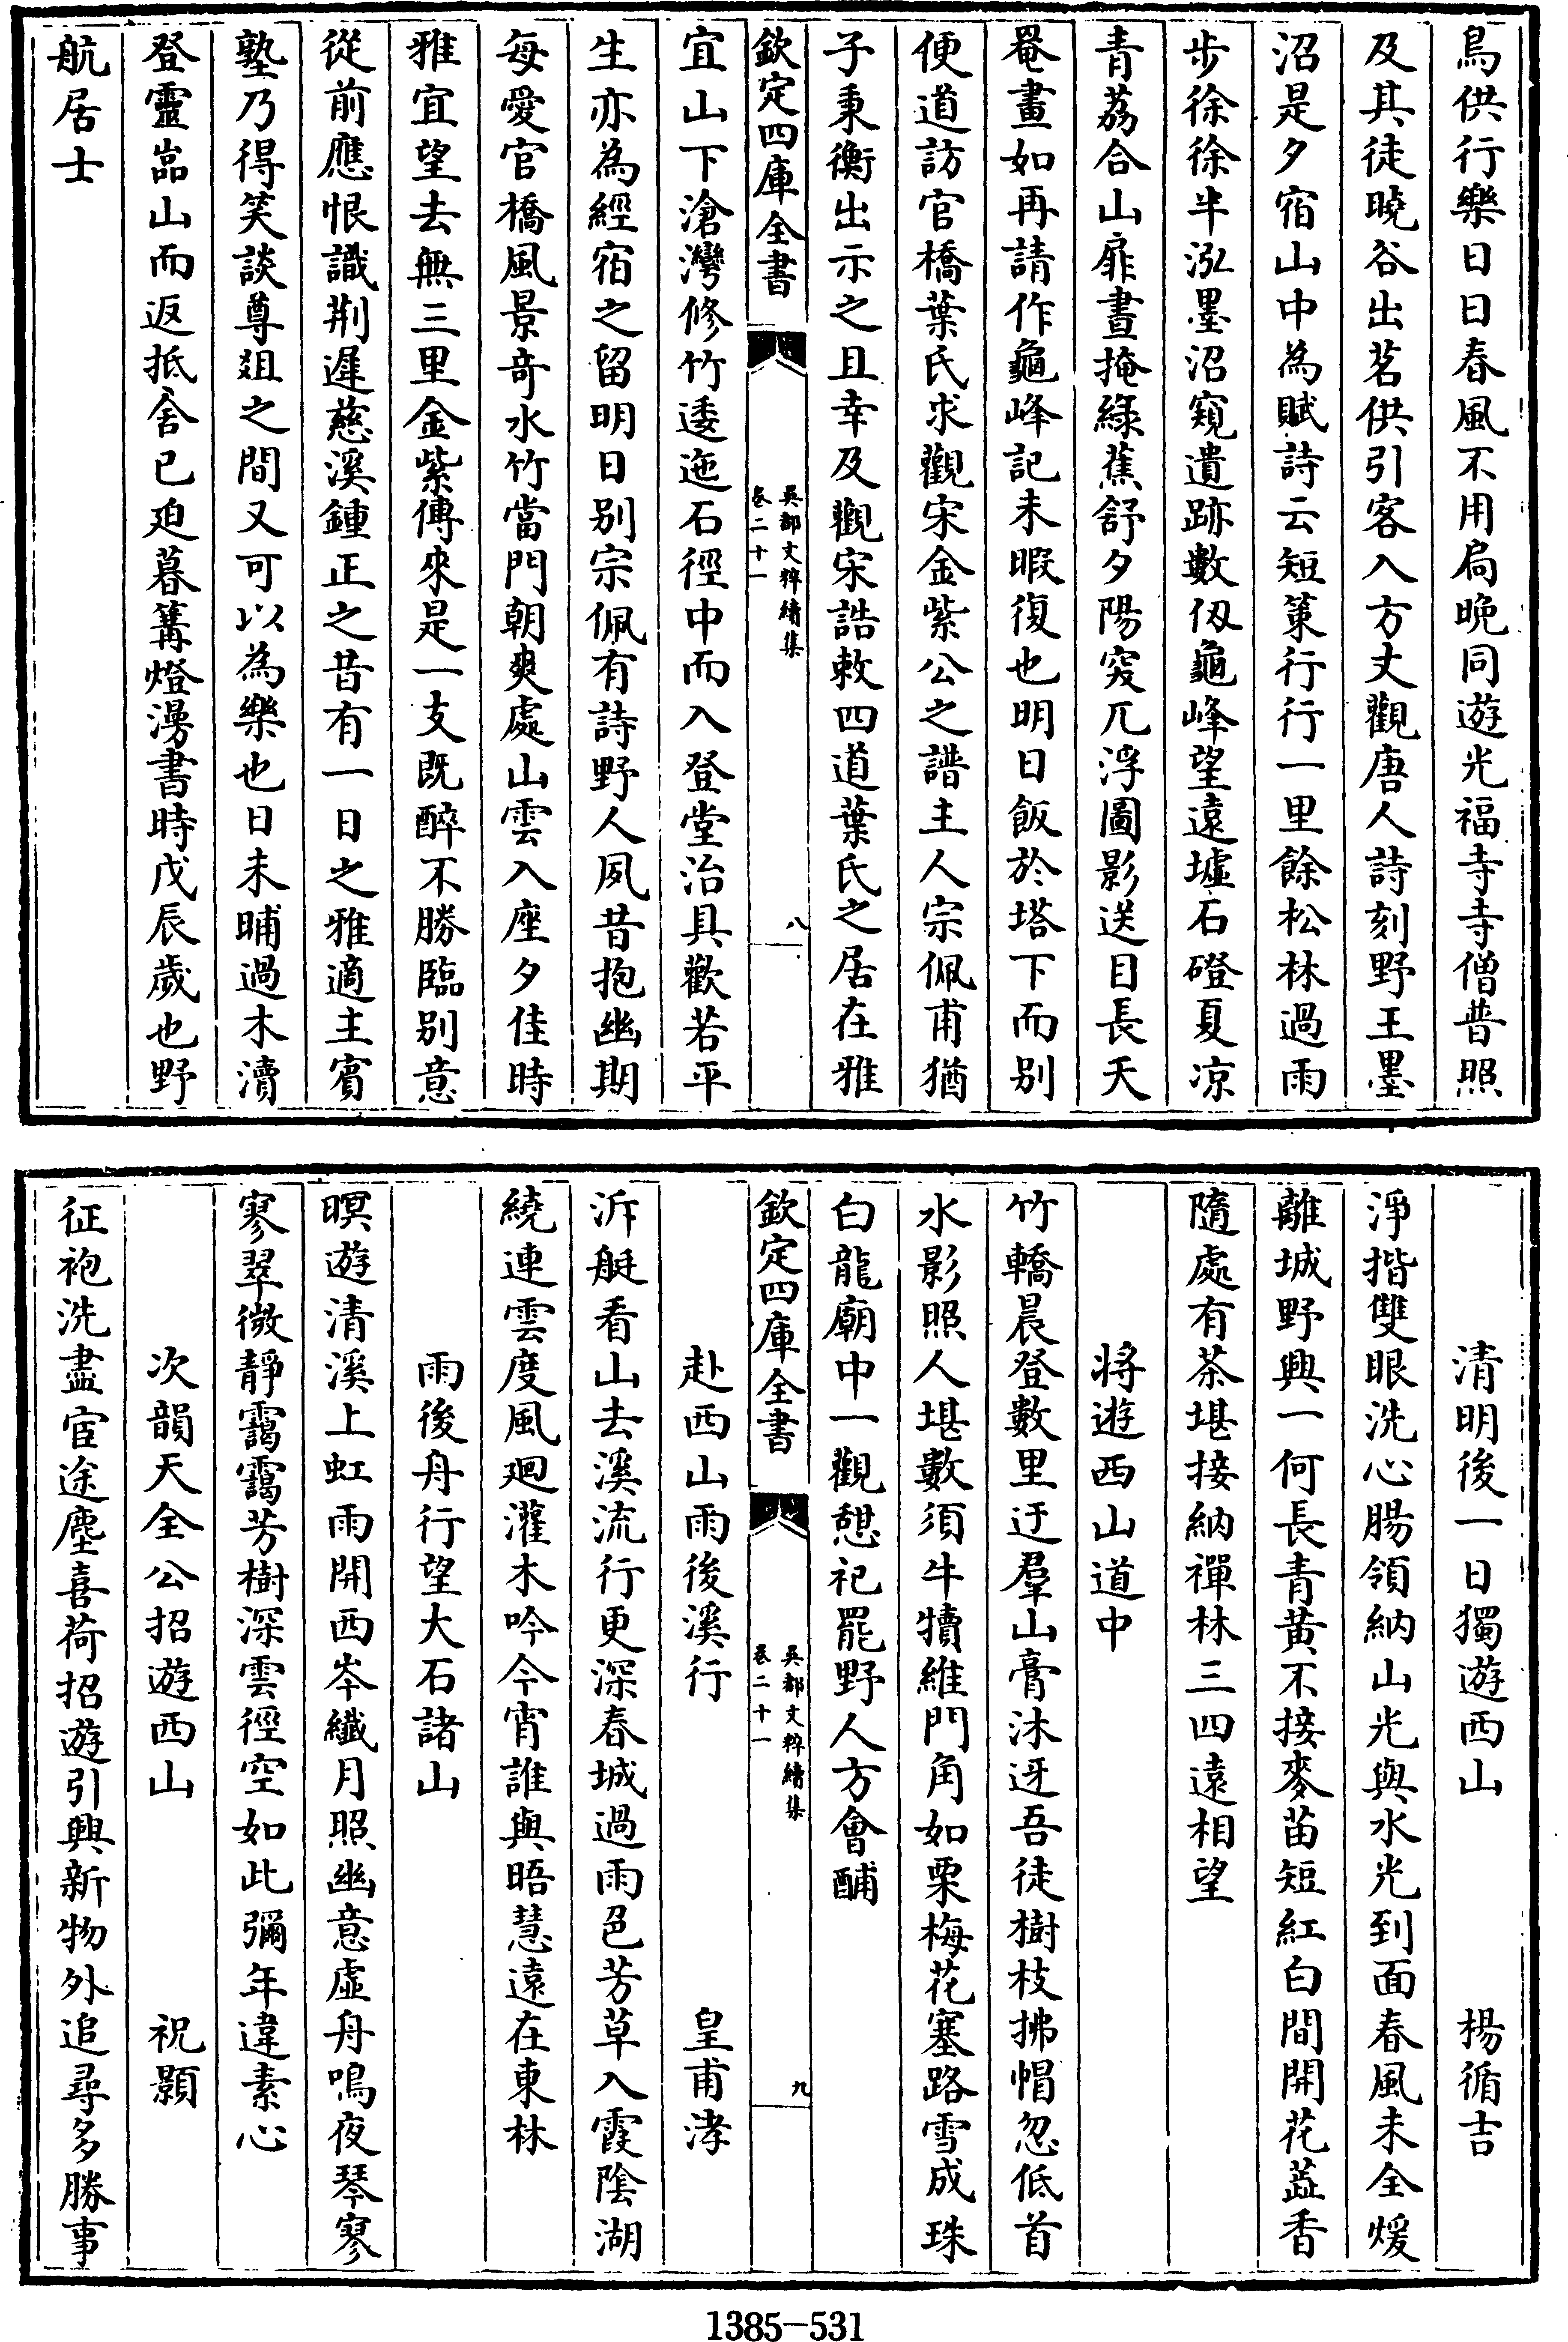 鳥供行樂日日春風不用扃晩同遊光福寺寺僧普照
及其徒曉谷出茗供引客入方丈觀唐人詩刻野王墨
沼是夕宿山中為賦詩云短䇿行行一里餘松林過雨
步徐徐半泓墨沼窺遺跡數仭龜峰望遠墟石磴夏凉
青荔合山扉晝掩綠蕉舒夕陽突兀浮圖影送目長天
罨畫如再請作龜峰記未暇復也明日飯於塔下而別
便道訪官橋葉氏求觀宋金紫公之譜主人宗佩甫猶
子秉衡出示之且幸及觀宋誥敕四道葉氏之居在雅
欽定四庫全書
吳都文粹續集
卷二十一
八
宜山下滄灣修竹逶迤石徑中而入登堂治具歡若平
生亦為經宿之留明日别宗佩有詩野人夙昔抱幽期
每愛官橋風景奇水竹當門朝爽處山雲入座夕佳時
雅宜望去無三里金紫傳來是一支既醉不勝臨别意
從前應恨識荆遲慈溪鍾正之昔有一日之雅適主賓
塾乃得笑談尊俎之間又可以為樂也日未晡過木瀆
登靈嵓山而返抵舍已廹暮篝燈漫書時戊辰歲也野
航居士
清明後一日獨遊西山　楊循吉
淨揩雙眼洗心腸領納山光與水光到面春風未全煖
離城野興一何長青黃不接麥苗短紅白間開花蕋香
隨處有茶堪接納禪林三四遠相望
將遊西山道中
竹轎晨登數里迂羣山膏沐迓吾徒樹枝拂帽忽低首
水影照人堪數須牛犢維門角如栗梅花塞路雪成珠
白龍廟中一觀憇祀罷野人方會酺
欽定四庫全書
吳都文粹續集
卷二十一
九
赴西山雨後溪行　皇甫涍
泝艇看山去溪流行更深春城過雨色芳草入霞陰湖
繞連雲度風廻灌木吟今宵誰與晤慧遠在東林
雨後舟行望大石諸山
暝遊清溪上虹雨開西岑纖月照幽意虛舟鳴夜琴寥
寥翠微靜靄靄芳樹深雲徑空如此彌年違素心
次韻天全公招遊西山　祝顥
征袍洗盡宦途塵喜荷招遊引興新物外追尋多勝事
1385-531